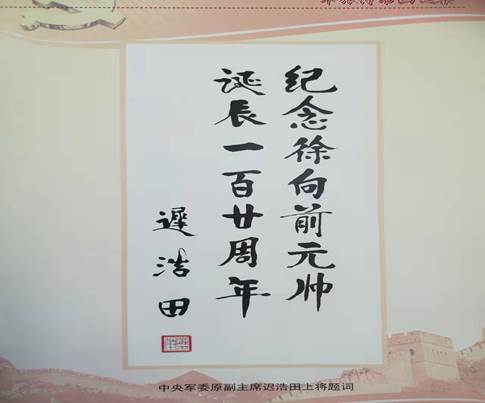 纪念徐向前元帅
诞辰一百廿周年
遲浩田
中央军委原副主席迟浩田上将题词